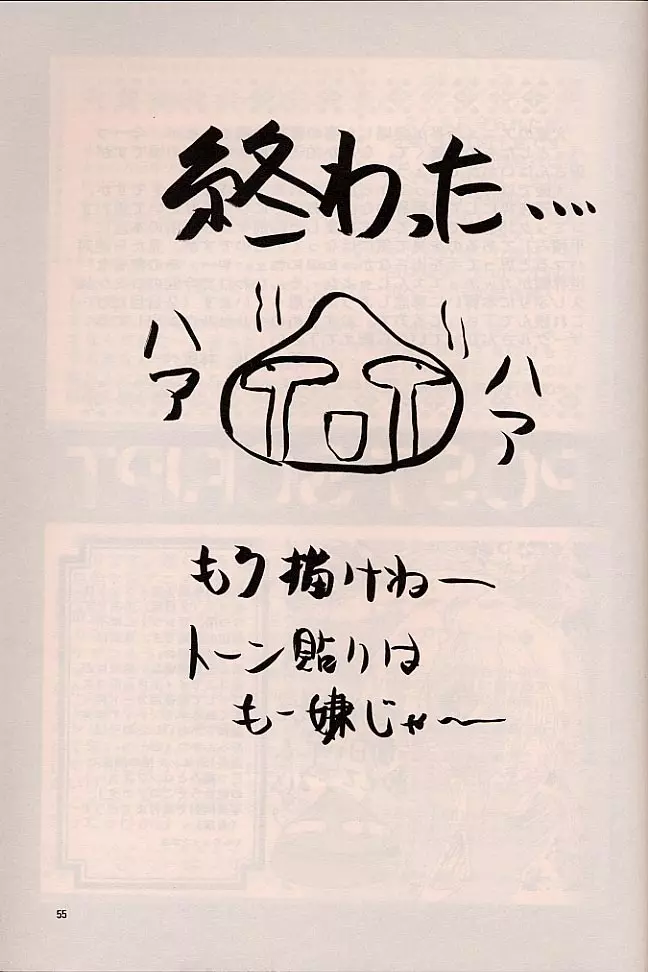 終わった....
ハア
ハア
もう描けねー
トーン貼りは
もー嫌じゃ〜
55